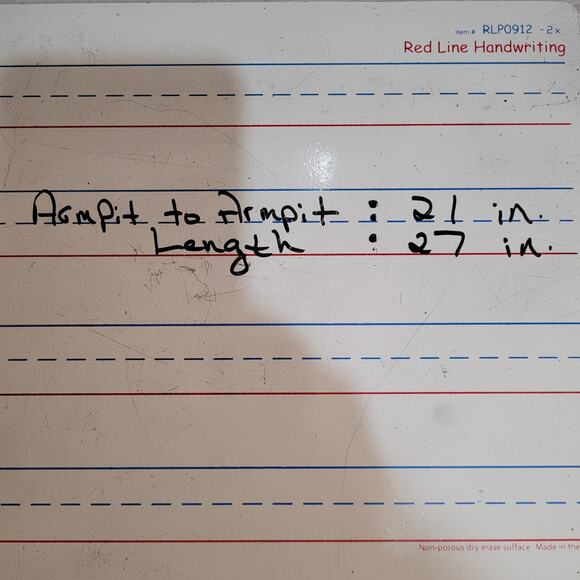 Item # RLP0912 - 2x
Red Line Handwriting
Armpit to Armpit : 21 in.
Length : 27 in.
Non-porous dry erase surface Made in the